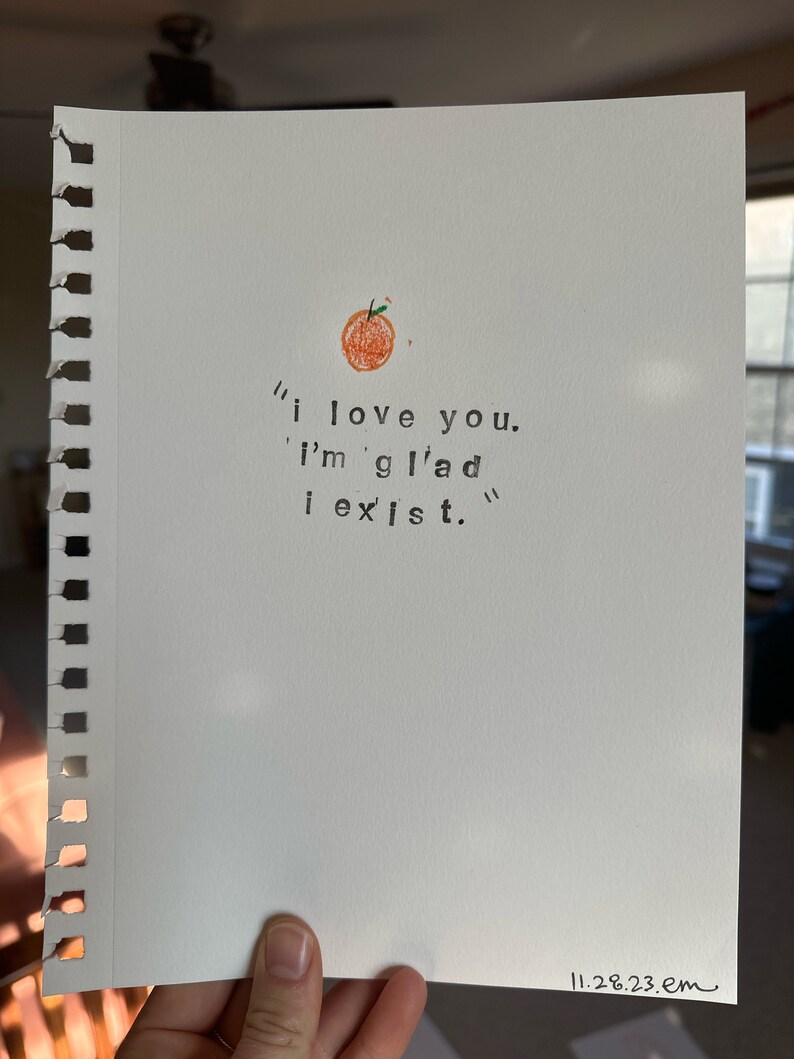 "i love you.
i'm glad
i exist."
11.28.23.em